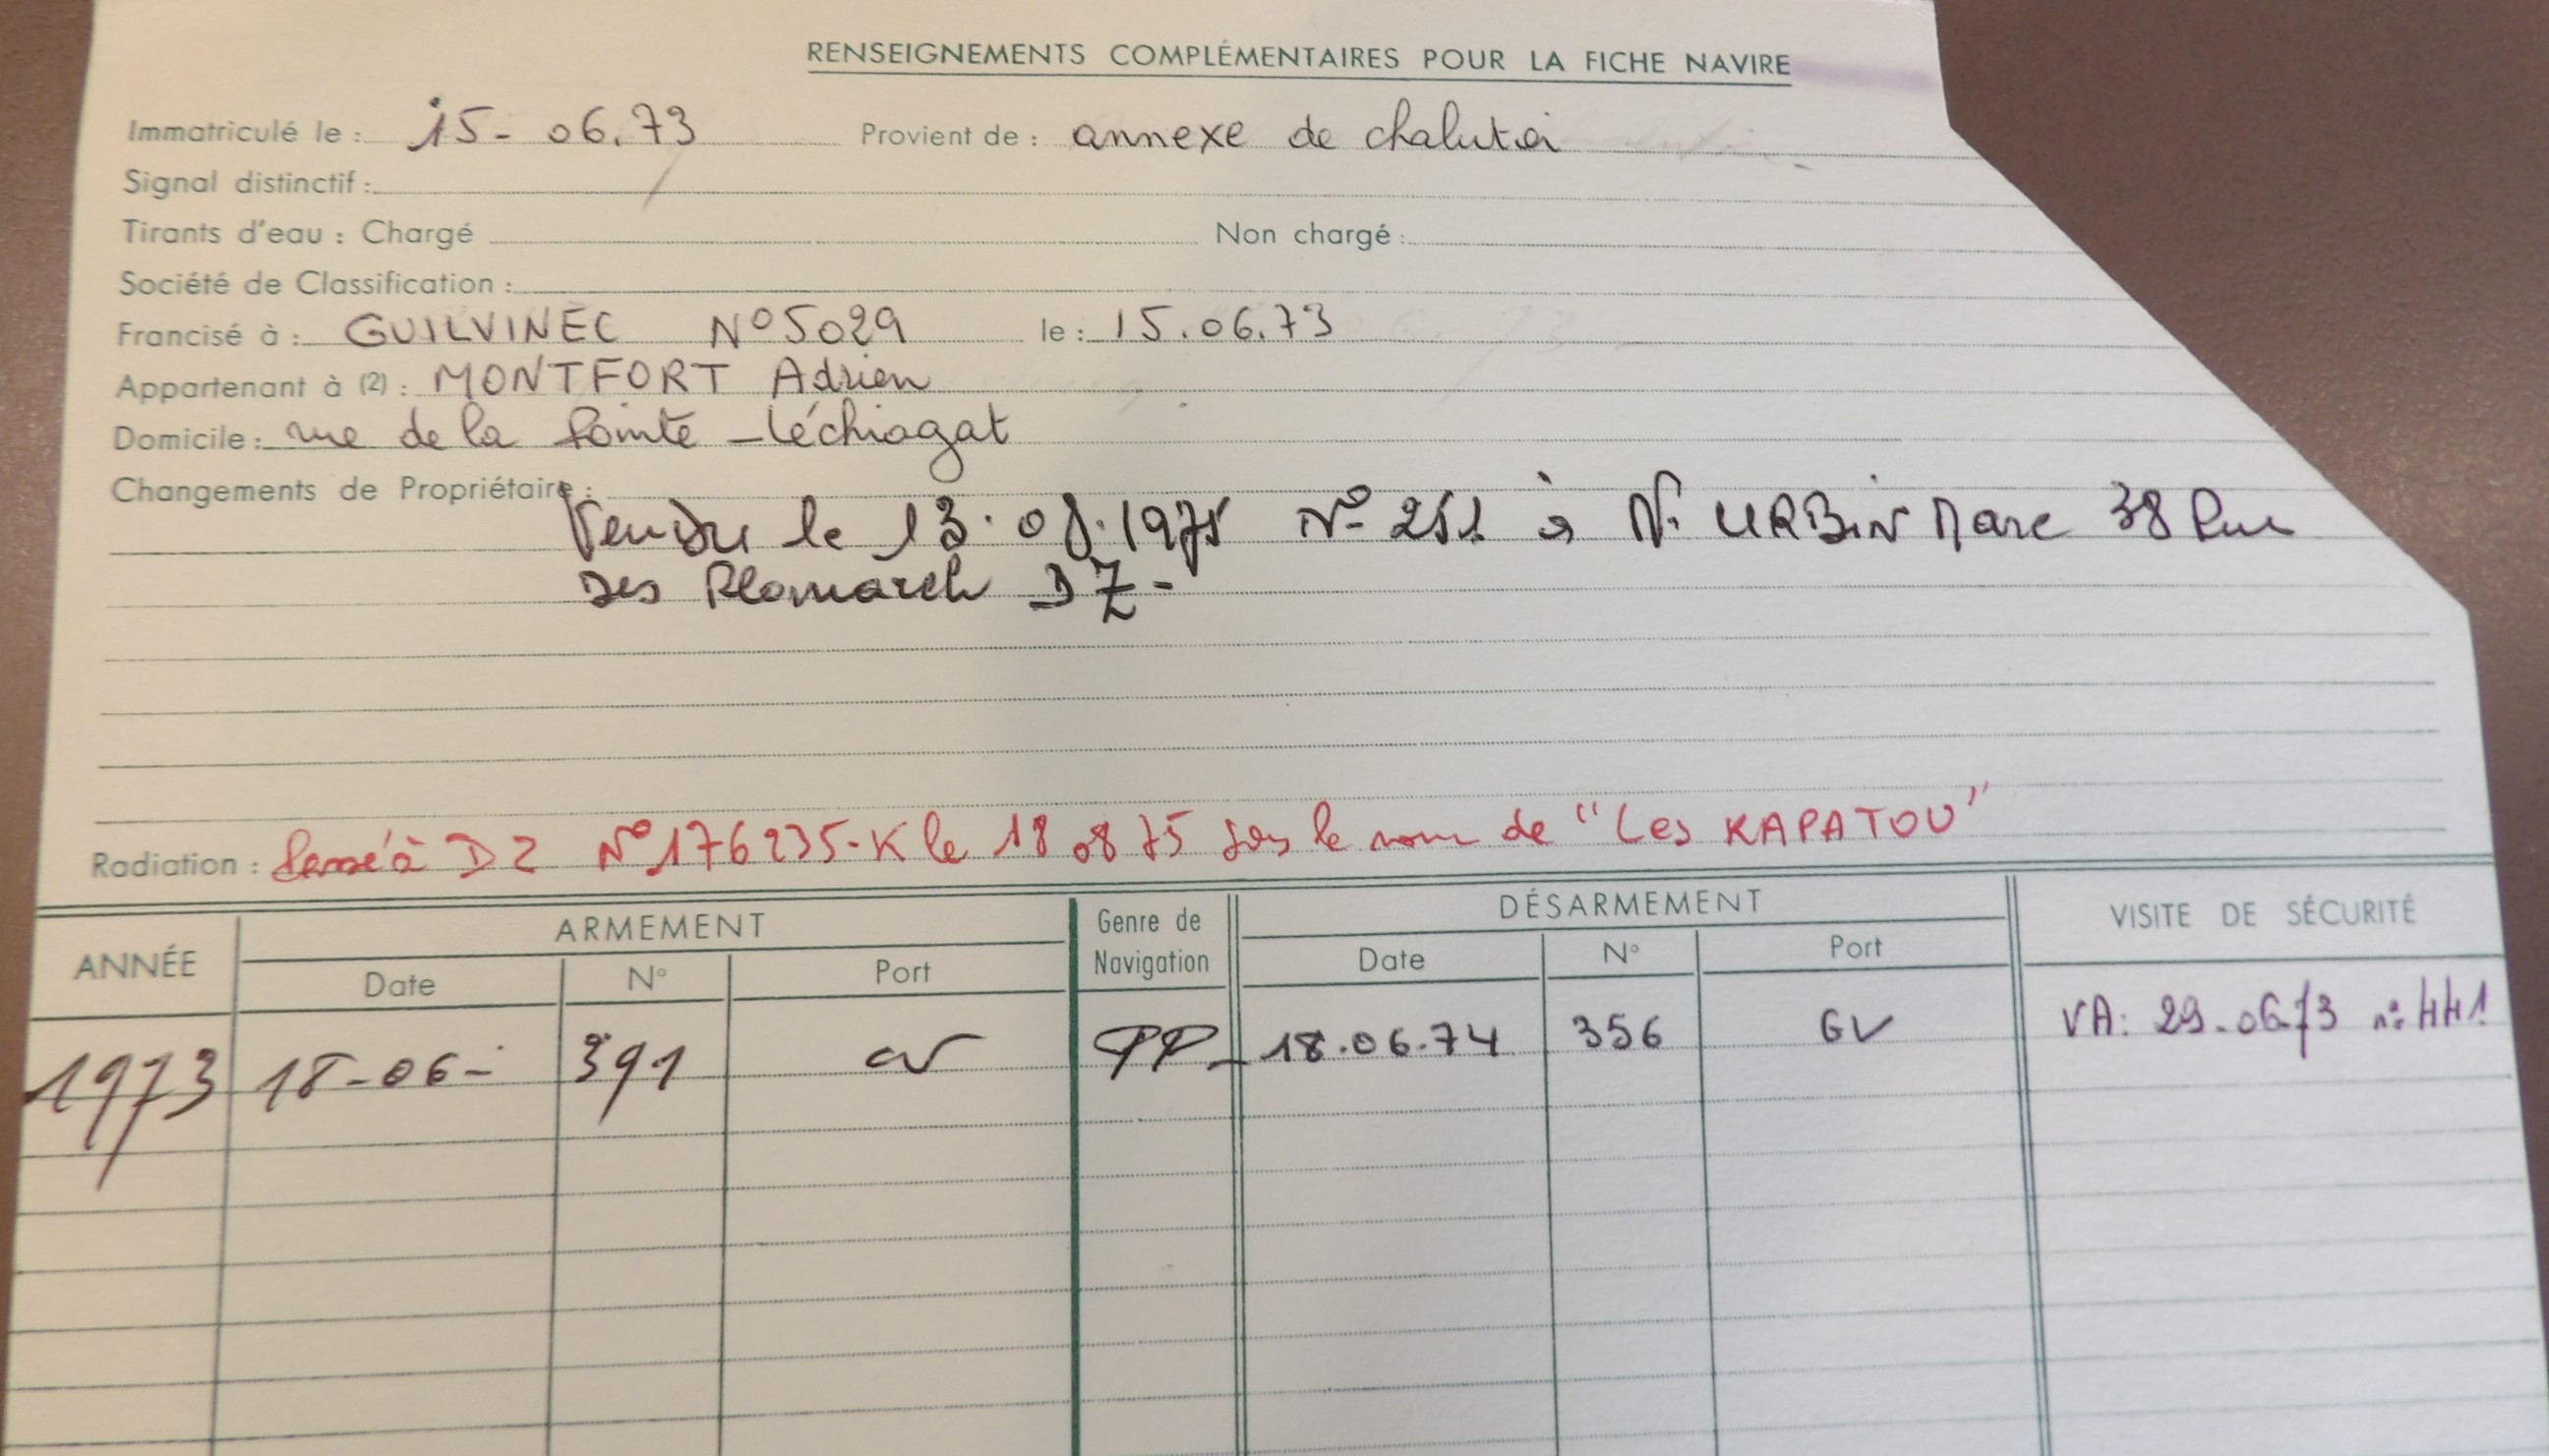 RENSEIGNEMENTS COMPLÉMENTAIRES POUR LA FICHE NAVIRE
Immatriculé le : 15-06.73 Provient de : annexe de chalutier
Signal distinctif :
Tirants d'eau : Chargé Non chargé :
Société de Classification :
Francisé à : GUILVINEC N° 5029 le : 15.06.73
Appartenant à (2) : MONTFORT Adrien
Domicile : rue de la Pointe - Léchiagat
Changements de Propriétaire :
Vendu le 13.08.1975 N° 251 à URBIN Marc 38 Rue
Des Plomarch DZ-
Radiation : Passé à DZ N° 176235-K le 18 08 75 sous le nom de "Les KAPATOU"
ANNÉE ARMEMENT Genre de Navigation DÉSARMEMENT VISITE DE SÉCURITÉ
Date N° Port Date N° Port
1973 18-06- 391 GV PP 18.06.74 356 GV VA: 29.06.73 n° 441